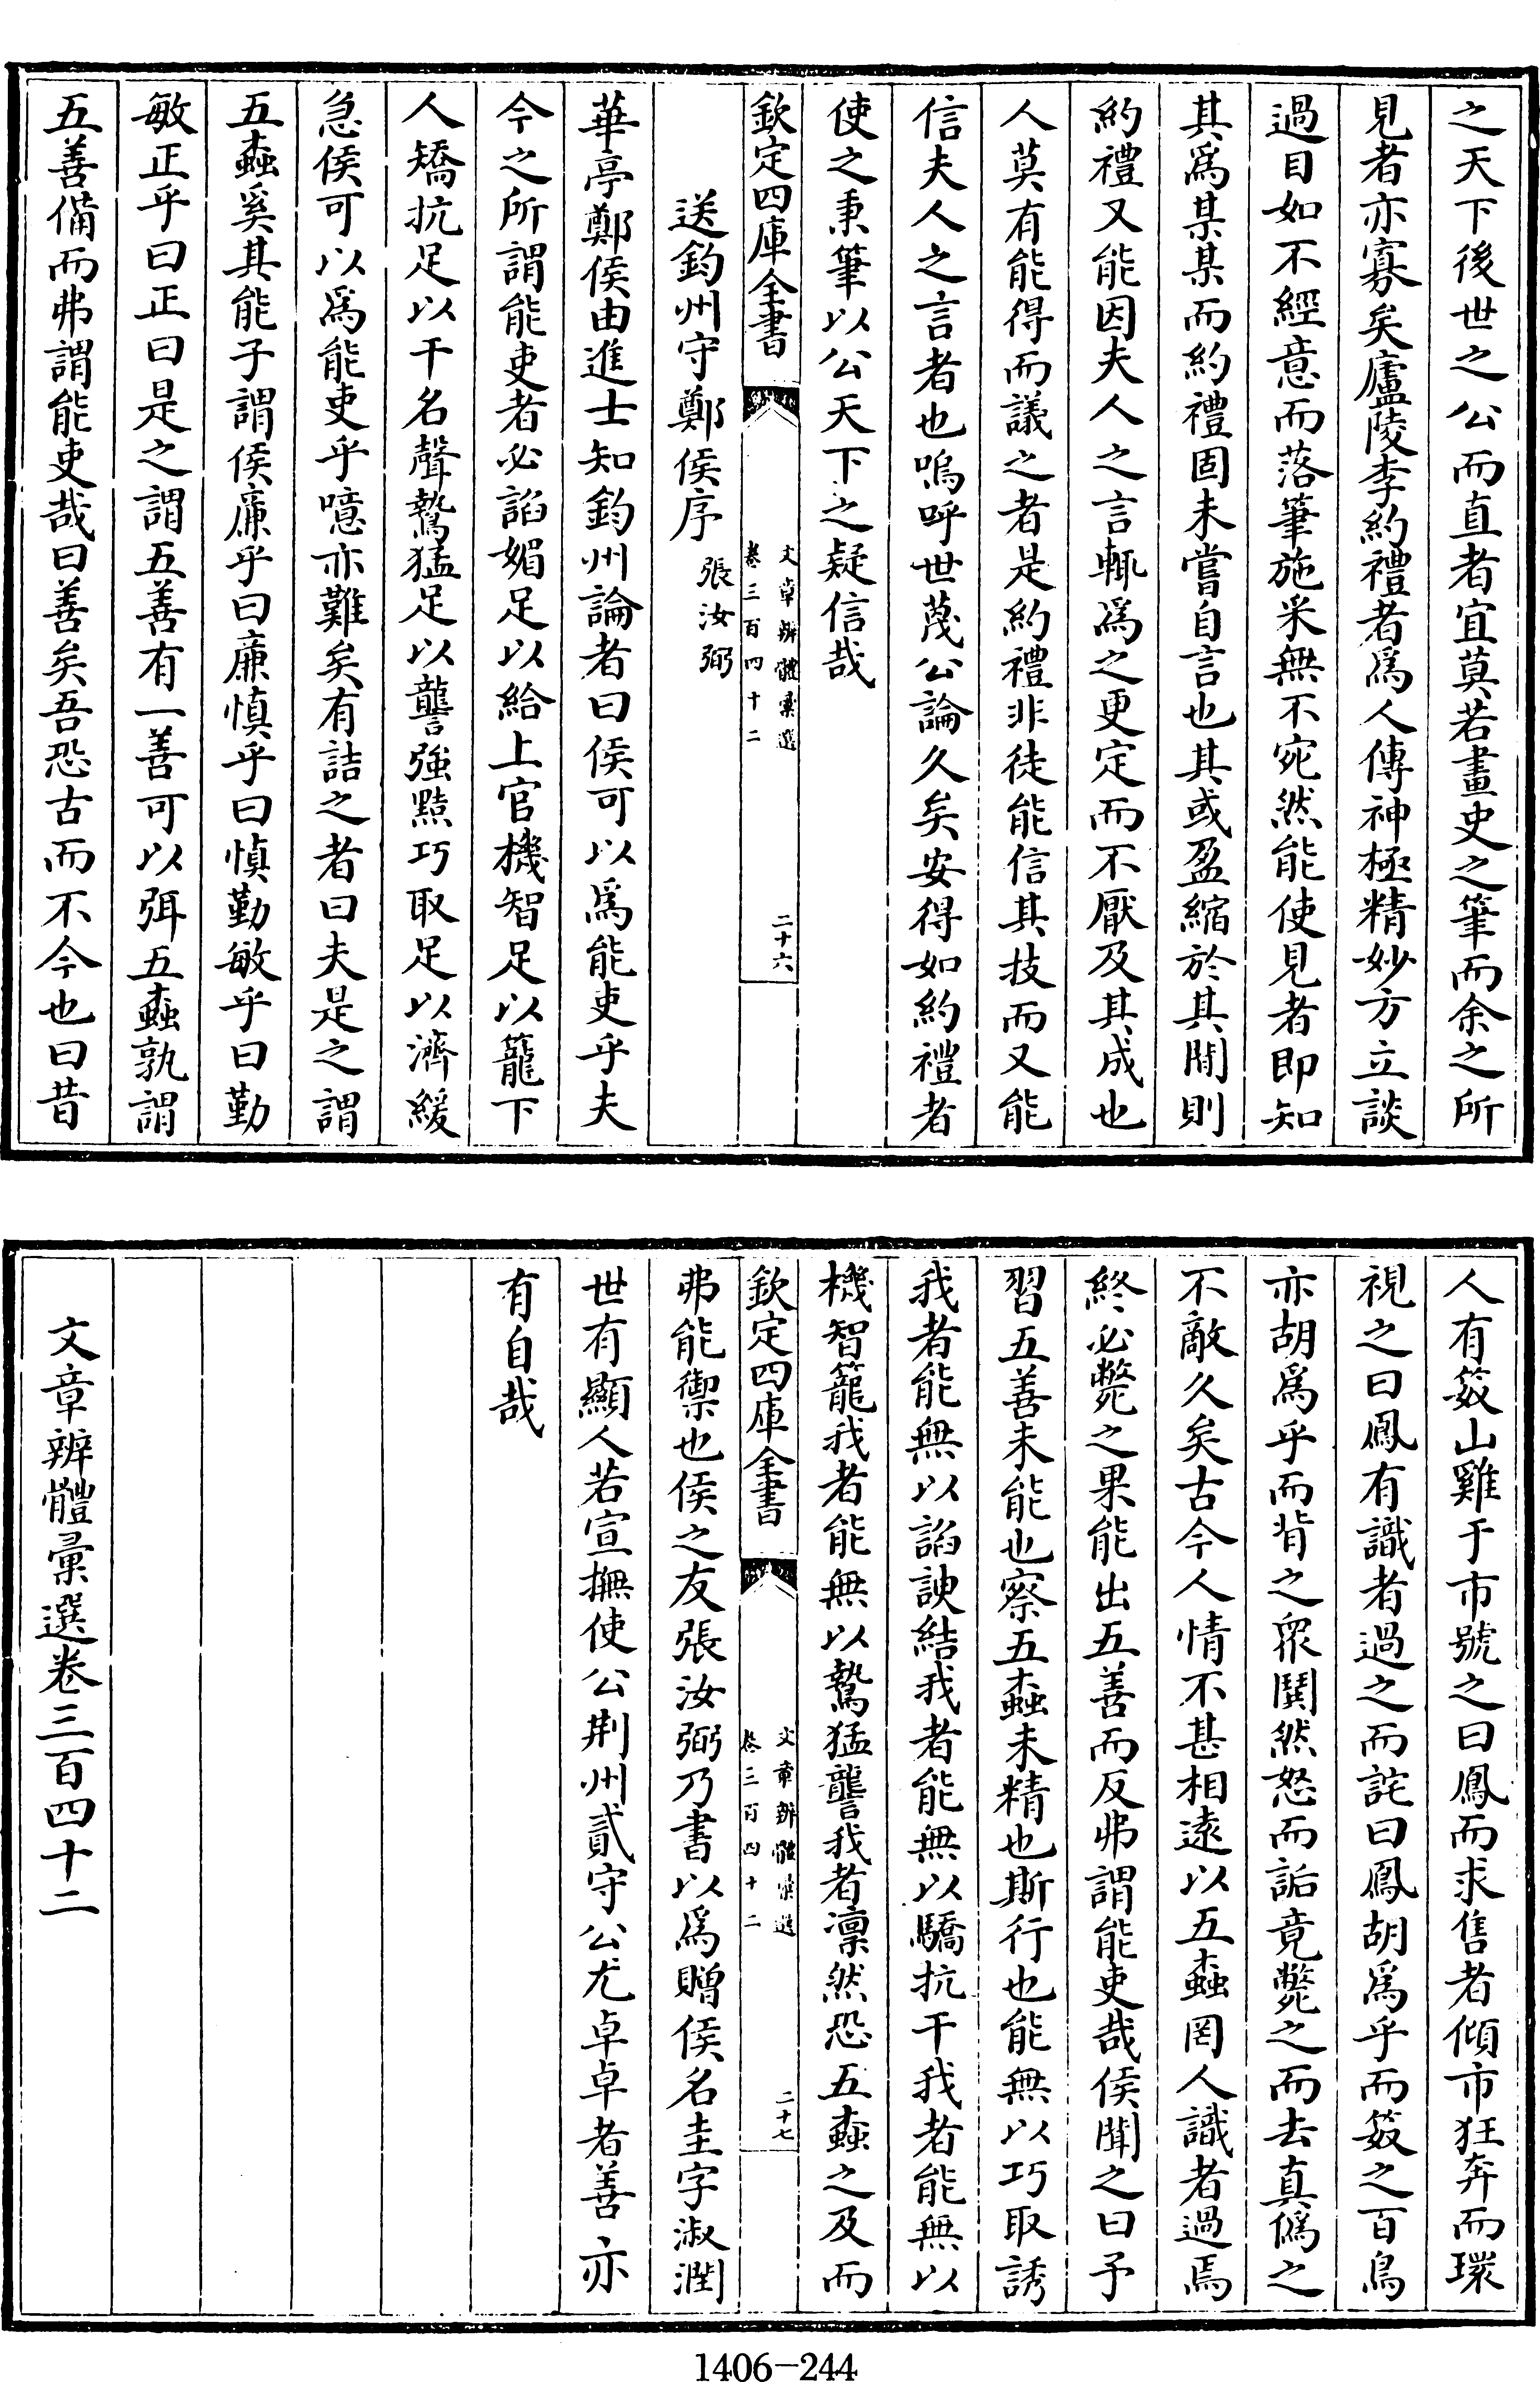 之天下後世之公而直者宜莫若畫史之筆而余之所
見者亦寡矣廬陵李約禮者爲人傳神極精妙方立談
過目如不經意而落筆施采無不宛然能使見者即知
其爲某某而約禮固未嘗自言也其或盈縮於其間則
約禮又能因夫人之言輒爲之更定而不厭及其成也
人莫有能得而議之者是約禮非徒能信其技而又能
信夫人之言者也嗚呼世蔑公論久矣安得如約禮者
使之秉筆以公天下之疑信哉
欽定四庫全書
文章辨體彙選
卷三百四十二
二十六
送鈞州守鄭侯序
張汝弼
華亭鄭侯由進士知鈞州論者曰侯可以爲能吏乎夫
今之所謂能吏者必諂媚足以給上官機智足以籠下
人矯抗足以干名聲鷙猛足以讋強黠巧取足以濟緩
急侯可以爲能吏乎噫亦難矣有詰之者曰夫是之謂
五蠧奚其能子謂侯廉乎曰廉慎乎曰慎勤敏乎曰勤
敏正乎曰正曰是之謂五善有一善可以弭五蠧孰謂
五善備而弗謂能吏哉曰善矣吾恐古而不今也曰昔
人有笯山雞于市號之曰鳳而求售者傾市狂奔而環
視之曰鳳有識者過之而詫曰鳳胡爲乎而笯之百鳥
亦胡爲乎而背之衆鬨然怒而詬竟斃之而去真僞之
不敵久矣古今人情不甚相遠以五蠧罔人識者過焉
終必斃之果能出五善而反弗謂能吏哉侯聞之曰予
習五善未能也察五蠧未精也斯行也能無以巧取誘
我者能無以諂諛結我者能無以驕抗干我者能無以
機智籠我者能無以鷙猛讋我者凛然恐五蠧之及而
欽定四庫全書
文章辨體彙選
卷三百四十二
二十七
弗能禦也侯之友張汝弼乃書以爲贈侯名圭字淑潤
世有顯人若宣撫使公荆州貳守公尤卓卓者善亦
有自哉
文章辨體彙選卷三百四十二
1406-244